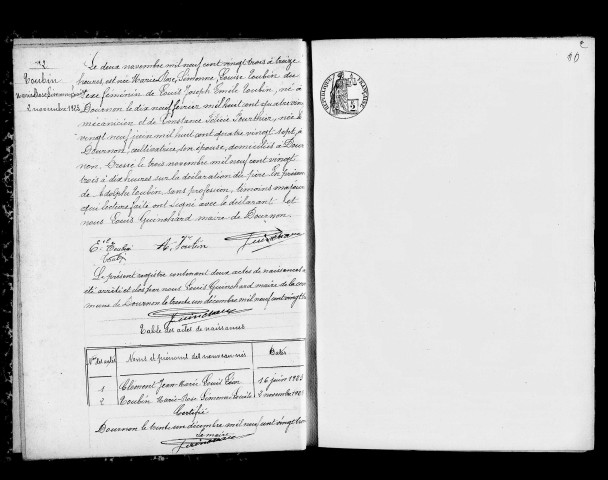 2
Toubin
Marie Rose Simonne Louise
2 novembre 1923
Le deux novembre mil neuf cent vingt trois à treize
heures, est née Marie Rose, Simonne, Louise Toubin du
sexe féminin de Louis Joseph Emile Toubin, né à
Dournon le dix neuf février mil huit cent quatre vingt
mécanicien et de Constance Félicie, née le
vingt neuf juin mil huit cent quatre vingt sept, à
Dournon, cultivatrice, son épouse, domiciliés à Dour
non. Dressé le trois novembre mil neuf cent vingt
trois à dix heures sur la déclaration du père. En présence
de Adolphe Toubin, sans profession, témoins majeurs
qui lecture faite ont signé avec le déclarant et
nous Louis Guinchard maire de Dournon.
E. Toubin A. Toubin Guinchard
Le présent registre contenant deux actes de naissances a
été arrêté et clos par nous Louis Guinchard maire de la com
mune de Dournon le trente un décembre mil neuf cent vingt trois
Guinchard
Table des actes de naissances
Nos des actes Noms et prénoms des nouveau-nés Dates
1 Clément Jean-Marie Louis Léon 16 juin 1923
2 Toubin Marie-Rose Simonne Louise 2 novembre 1923
Certifié
Dournon le trente un décembre mil neuf cent vingt trois
Le maire
Guinchard
2
10